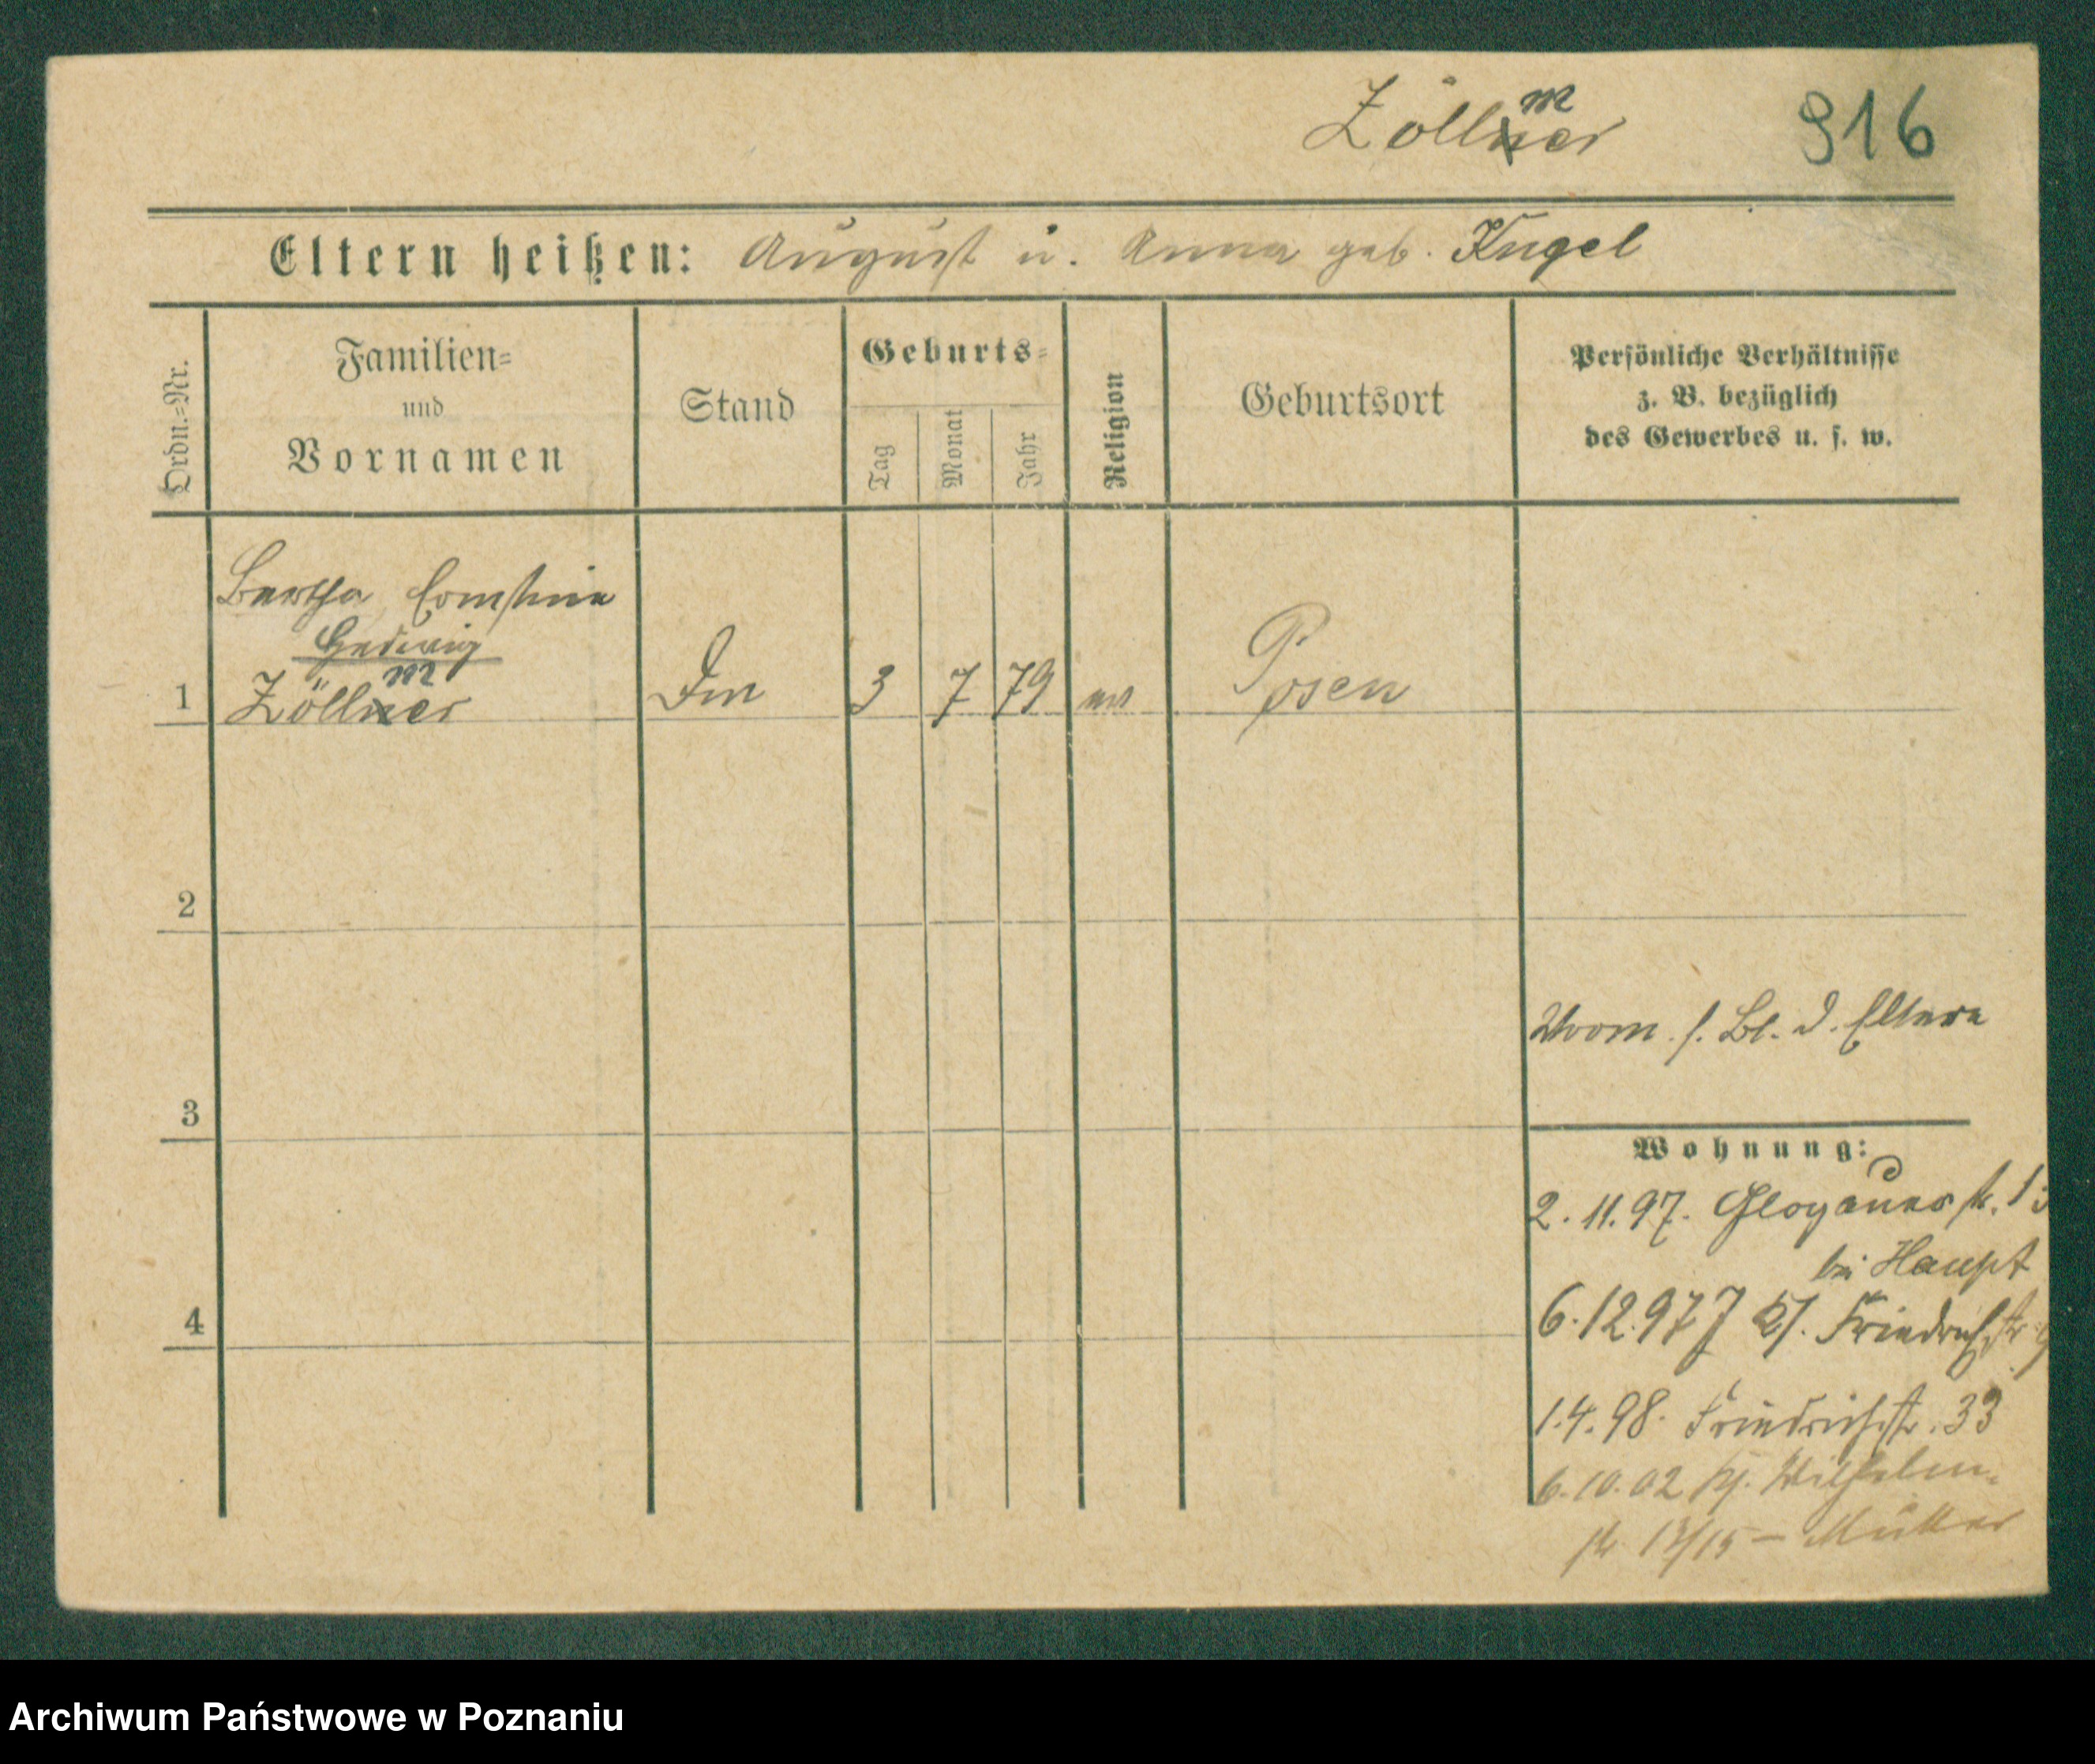 Zöllner
m
916
Eltern heißen: August u. Anna geb. Kugel
Ordn.=Nr.
Familien=
und
Vornamen
Stand
Geburts=
Tag
Monat
Jahr
Religion
Geburtsort
Persönliche Verhältnisse
z. B. bezüglich
des Gewerbes u. s. w.
Bertha Ernestine
Hedwig
m
1 Zöllner 3 7 79 ev Posen
2
Vorm. s. Bl. d. Eltern
3
Wohnung:
2. 11. 97. Glogauerstr.
bei Haupt
4
6. 12. 97 Friedrichstr
1. 4. 98. Friedrichstr. 33
6. 10. 02 Wilhelm-
str. 13/15 — Mutter
Archiwum Państwowe w Poznaniu